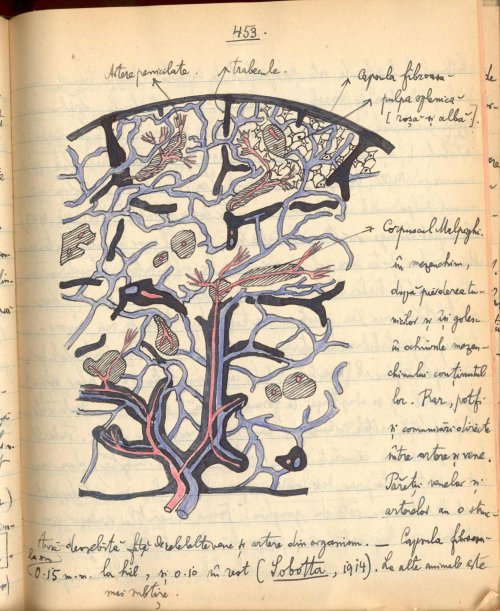 453.
Artere penicilate.
trabecule.
Capsula fibroasă
pulpa splenică
[roșă și albă].
Corpuscul Malpighi.
în mezenchim,
după pierderea tu-
nicilor și își golesc
în ochiurile mezen-
chimului conținutul
lor. Rar, pot fi
și comunicări directe
între artere și vene.
Pereții venelor și
arterelor au o struc-
deosebită față de celelalte vene și artere din organism. — Capsula fibroasă
0.15 m.m. la hil, și 0.10 în rest (Sobotta, 1914). La alte animale este
mai subțire.